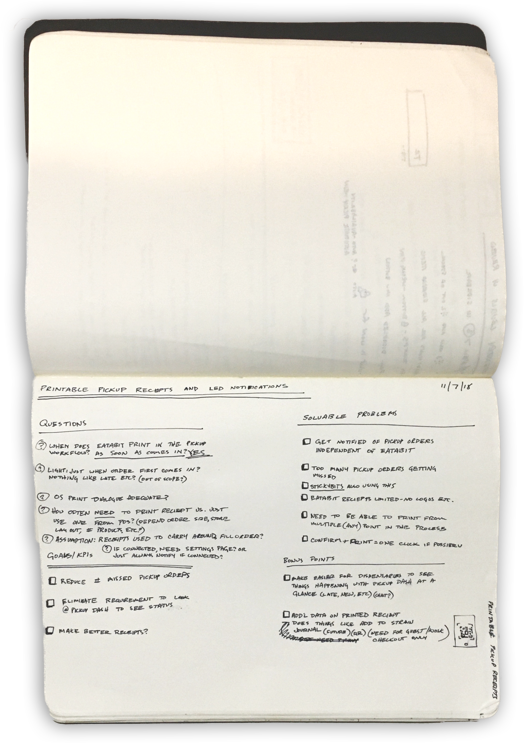 PRINTABLE PICKUP RECEIPTS AND LED NOTIFICATIONS
11/7/18
QUESTIONS
? WHEN DOES EATABIT PRINT IN THE PICKUP
WORKFLOW? AS SOON AS COMES IN? YES
? LIGHT: JUST WHEN ORDER FIRST COMES IN?
NOTHING LIKE LATE ETC? (OUT OF SCOPE?)
? OS PRINT DIALOGUE ADEQUATE?
? HOW OFTEN NEED TO PRINT RECEIPT VS. JUST
USE ONE FROM POS? (DEPEND ORDER SIZE, STORE
LAY OUT, # PRODUCTS, ETC?)
? ASSUMPTION: RECEIPTS USED TO CARRY AROUND, FILL ORDER?
? IF CONNECTED, NEED SETTINGS PAGE? OR
JUST ALWAYS NOTIFY IF CONNECTED?
GOALS/KPIS
REDUCE # MISSED PICKUP ORDERS
ELIMINATE REQUIREMENT TO LOOK
@ PICKUP DASH TO SEE STATUS
MAKE BETTER RECEIPTS?
SOLVABLE PROBLEMS
GET NOTIFIED OF PICKUP ORDERS
INDEPENDENT OF EATABIT
TOO MANY PICKUP ORDERS GETTING
MISSED
ALSO USING THIS
EATABIT RECIEPTS LIMITED - NO LOGOS ETC.
NEED TO BE ABLE TO PRINT FROM
MULTIPLE (ANY) POINT IN THE PROCESS
CONFIRM + PRINT = ONE CLICK IF POSSIBLE
BONUS POINTS
MAKE EASIER FOR DISPENSARIES TO SEE
THINGS HAPPENING WITH PICKUP DASH AT A
GLANCE (LATE, NEW, ETC)
ADDL DATA ON PRINTED RECIEPT
DOES THINGS LIKE ADD TO STRAIN
JOURNAL (FUTURE) (QR) (NEED FOR GUEST/KIOSK
CHECKOUT
PRINTABLE PICKUP RECEIPTS